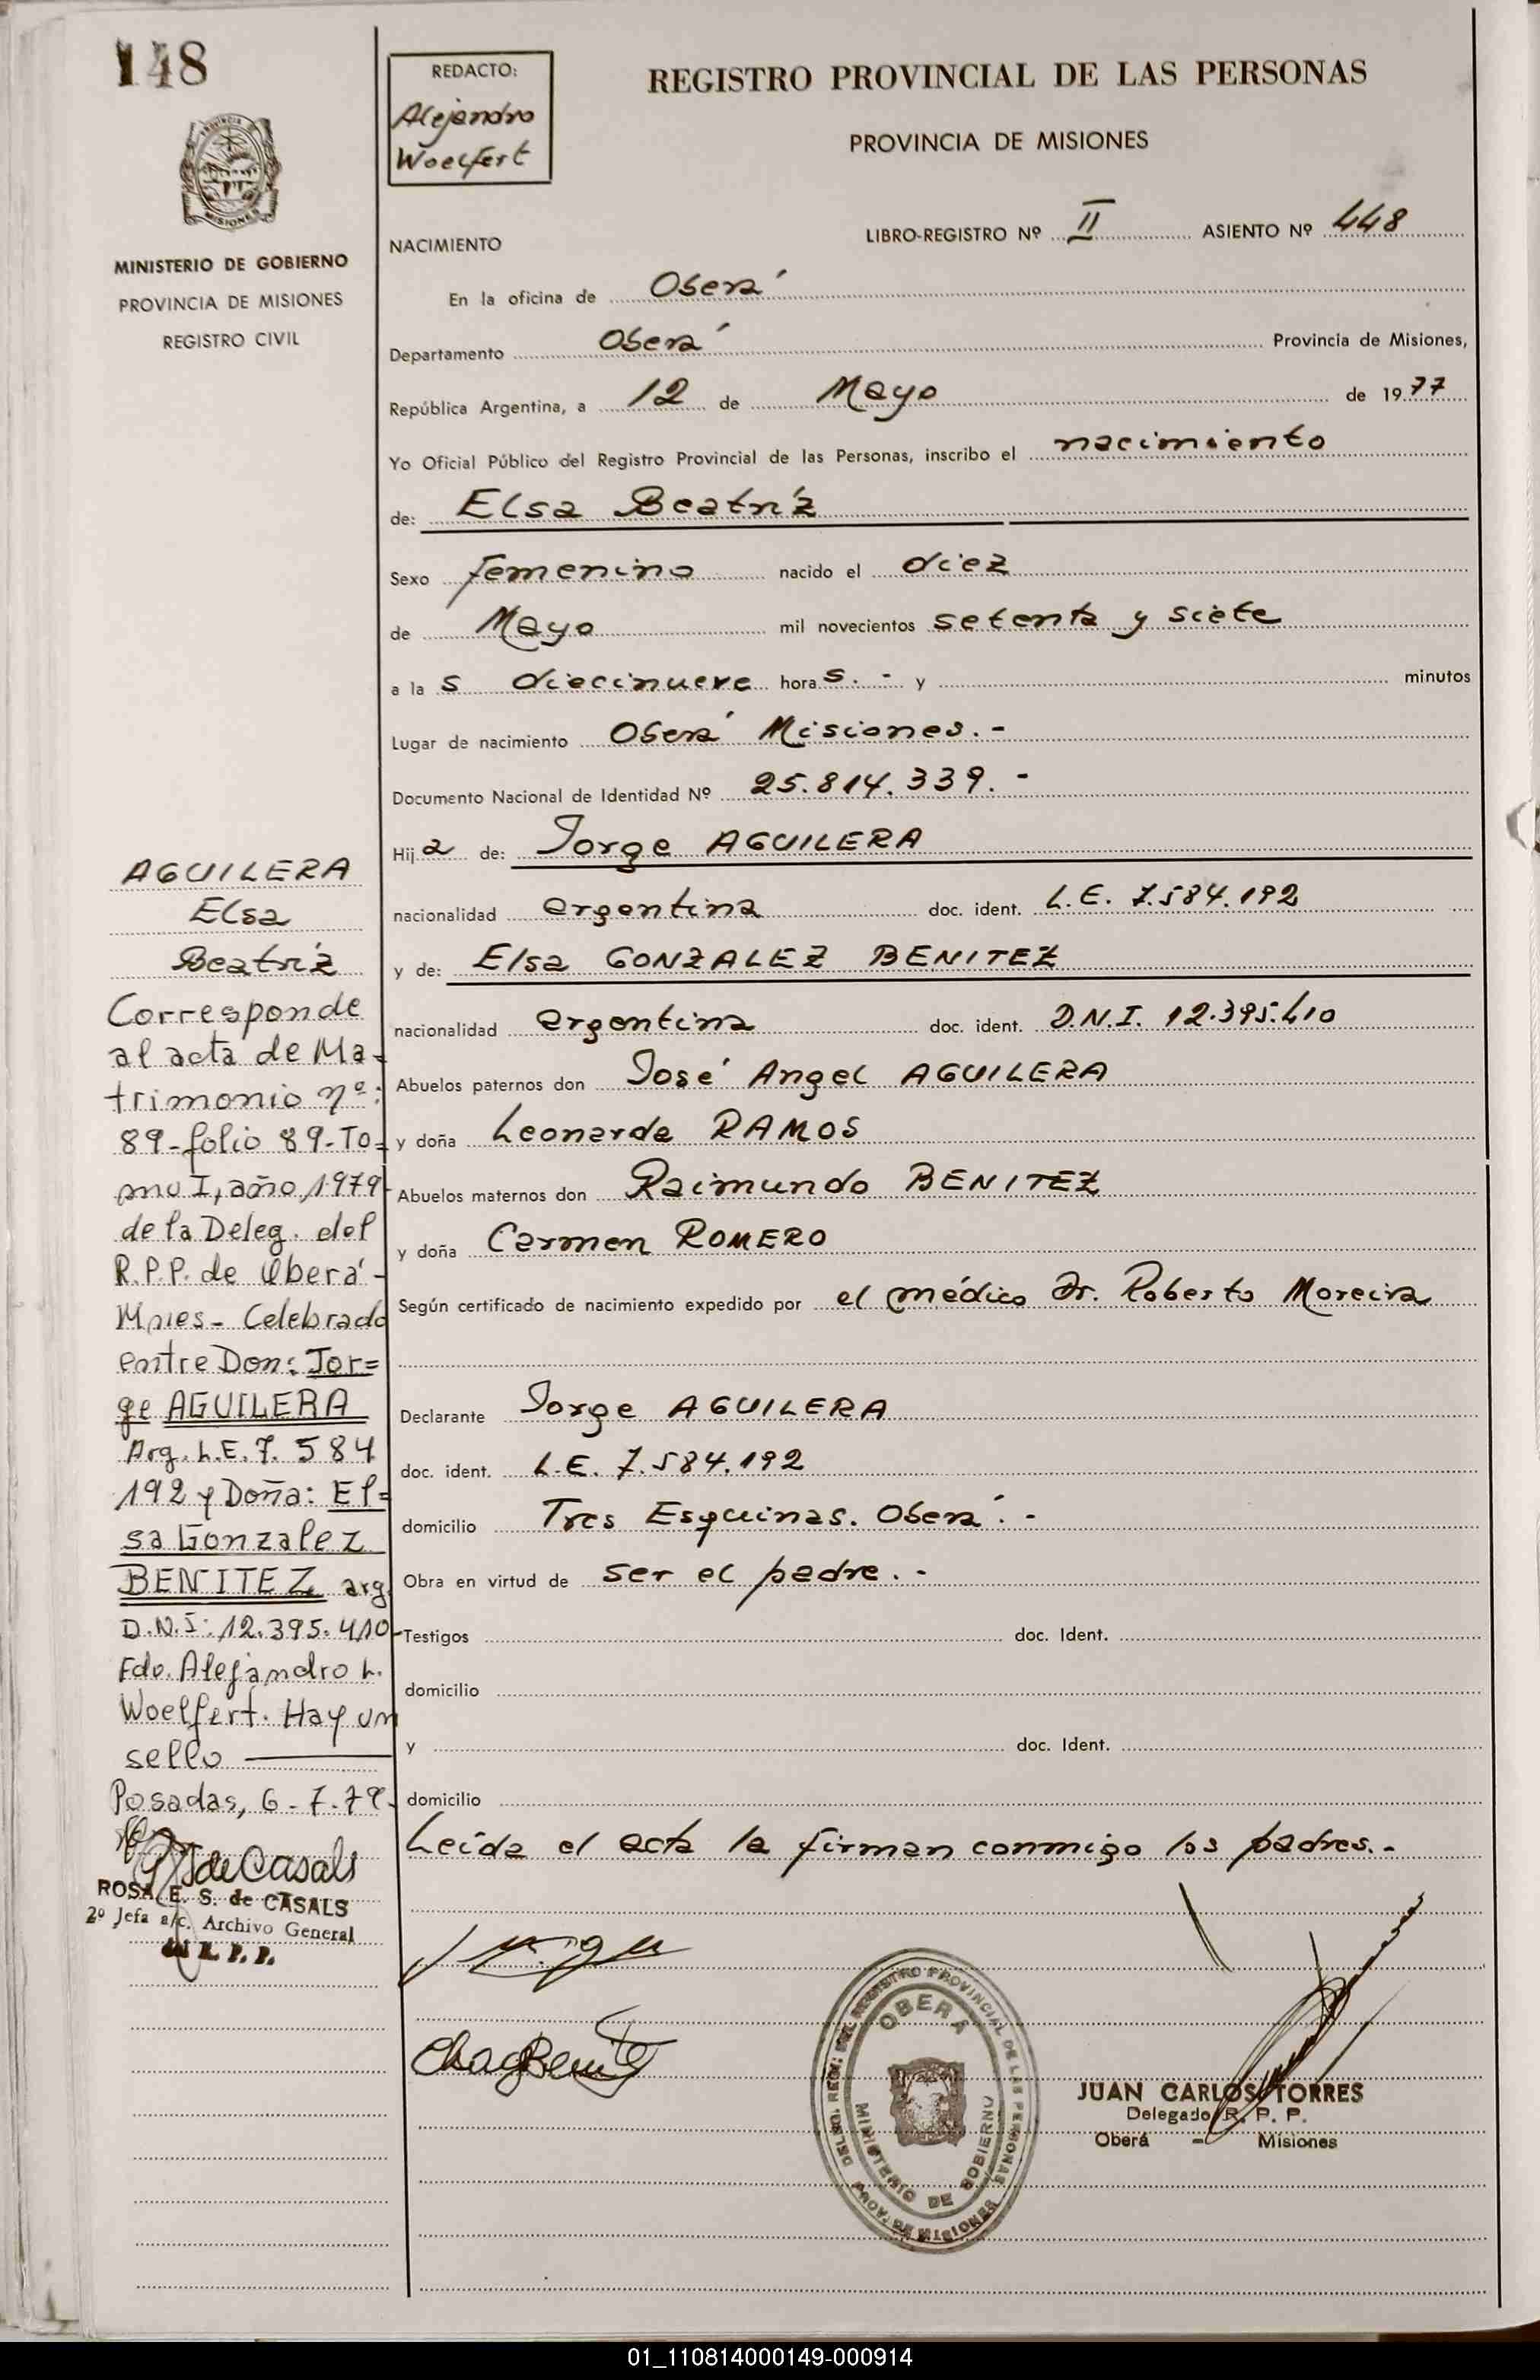 148
MINISTERIO DE GOBIERNO
PROVINCIA DE MISIONES
REGISTRO CIVIL
AGUILERA
Elsa
Beatríz
Corresponde
al acta de Ma-
trimonio nº:
89-folio 89-To=
mo I, año 1979
de la Deleg. del
R.P.P. de Oberá-
Mnes- Celebrado
entre Don: Jor=
ge AGUILERA
Arg. L.E. 7.584
192 y Doña: El=
sa Gonzalez
BENITEZ arg.
D.N.I: 12.395.410-
Fdo. Alejandro L.
Woelfert. Hay un
sello
Posadas, 6-7-79-
ROSA E. S. de CASALS
2º Jefa a/c. Archivo General
del R. P. P.
REDACTO:
Alejandro
Woelfert
REGISTRO PROVINCIAL DE LAS PERSONAS
PROVINCIA DE MISIONES
LIBRO-REGISTRO Nº II ASIENTO Nº 448
NACIMIENTO
En la oficina de Oberá
Departamento Oberá Provincia de Misiones,
República Argentina, a 12 de Mayo de 1977
Yo Oficial Público del Registro Provincial de las Personas, inscribo el nacimiento
de: Elsa Beatríz
Sexo femenino nacido el diez
de Mayo mil novecientos setenta y siete
a la s diecinueve hora s. - y minutos
Lugar de nacimiento Oberá Misiones. -
Documento Nacional de Identidad Nº 25.814.339. -
Hij a de: Jorge AGUILERA
nacionalidad argentina doc. ident. L.E. 7.584.192
y de: Elsa GONZALEZ BENITEZ
nacionalidad argentina doc. ident. D.N.I. 12.395.410
Abuelos paternos don José Angel AGUILERA
y doña Leonarda RAMOS
Abuelos maternos don Raimundo BENITEZ
y doña Carmen ROMERO
Según certificado de nacimiento expedido por el médico Dr. Roberto Moreira
Declarante Jorge AGUILERA
doc. ident. L.E. 7.584.192
domicilio Tres Esquinas. Oberá. -
Obra en virtud de ser el padre. -
Testigos doc. Ident.
domicilio
y doc. Ident.
domicilio
Leída el acta la firman conmigo los padres. -
OBERÁ
MINISTERIO DE GOBIERNO
JUAN CARLOS TORRES
Delegado R. P. P.
Oberá - Misiones
01_110814000149-000914